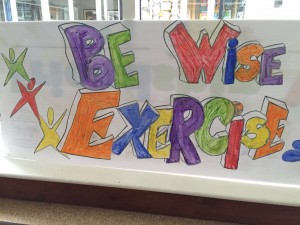 Be Wise
Exercise